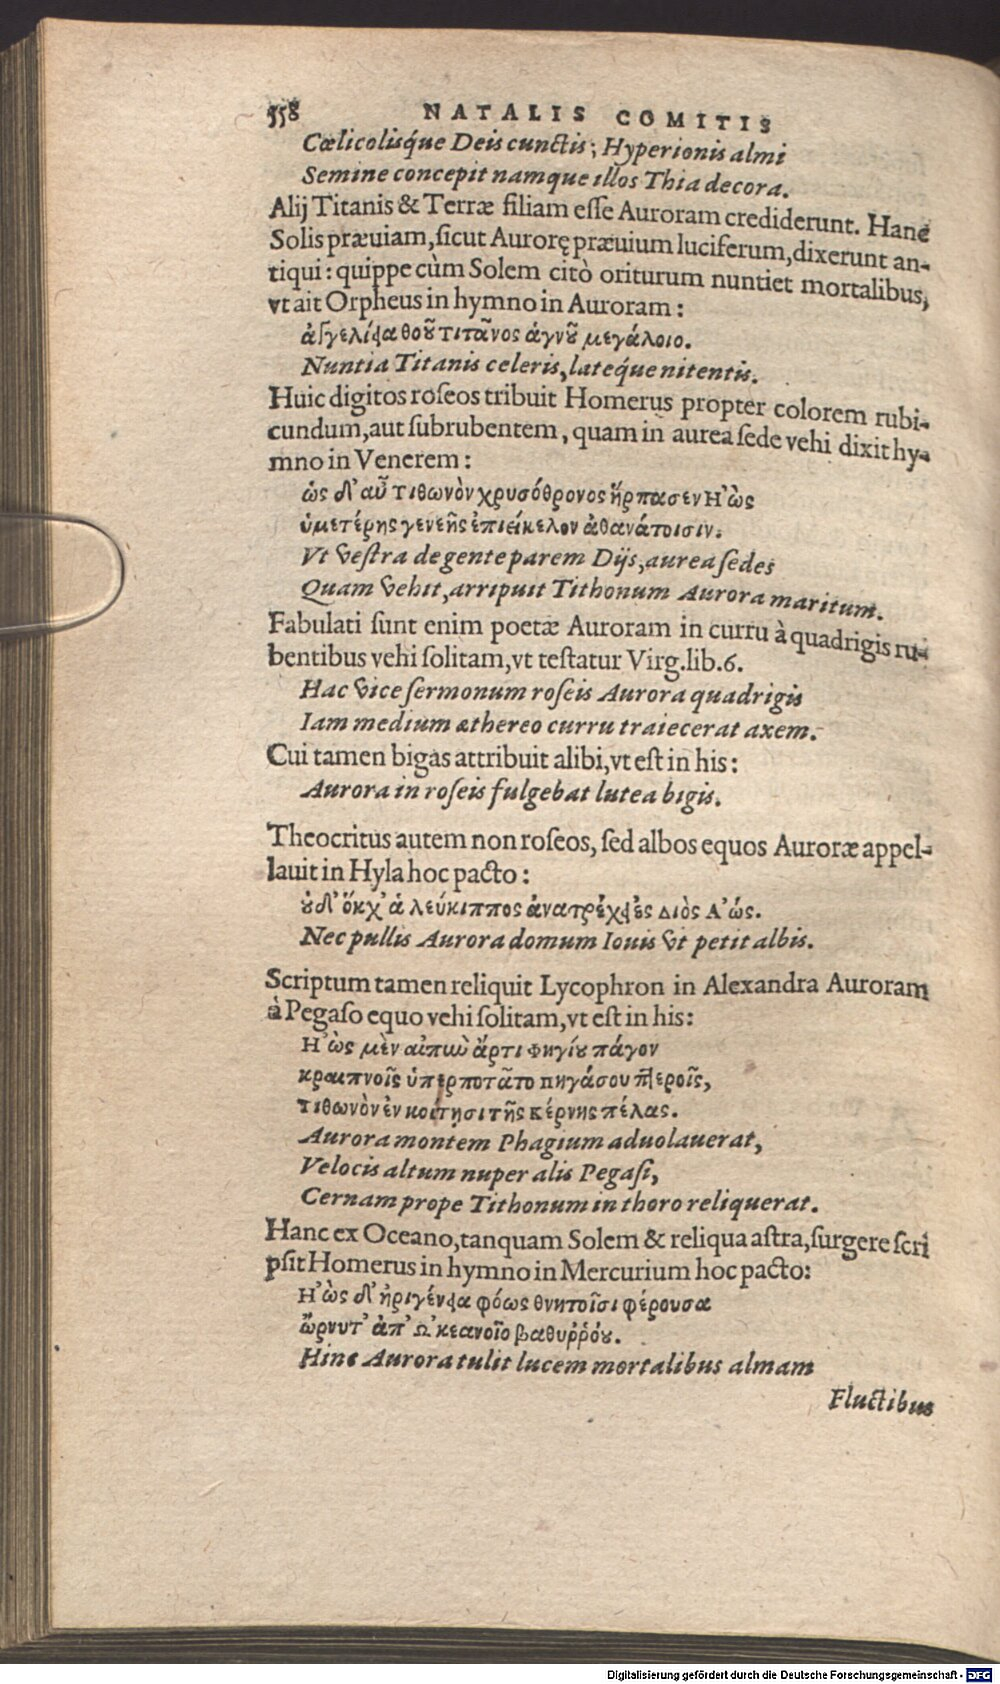 558 NATALIS COMITIS
Cœlicolisq́ue Deis cunctis; Hyperionis almi
Semine concepit namque illos Thia decora.
Alij Titanis & Terræ filiam eſſe Auroram crediderunt. Hanc
Solis præuiam, ſicut Aurorę præuium luciferum, dixerunt an-
tiqui: quippe cùm Solem citò oriturum nuntiet mortalibus,
vt ait Orpheus in hymno in Auroram:
ἀγγελίεια θοῦ Τιτᾶνος ἁγνοῦ μεγάλοιο.
Nuntia Titanis celeris, lateq́ue nitentis.
Huic digitos roſeos tribuit Homerus propter colorem rubi-
cundum, aut ſubrubentem, quam in aurea ſede vehi dixit hy-
mno in Venerem:
ὡς δ' αὖ Τιθωνὸν χρυσόθρονος ἥρπασεν Η'ὼς
ὑμετέρης γενεῆς ἐπιείκελον ἀθανάτοισιν.
Vt veſtra de gente parem Dijs, aurea ſedes
Quam vehit, arripuit Tithonum Aurora maritum.
Fabulati ſunt enim poetæ Auroram in curru à quadrigis ru-
bentibus vehi ſolitam, vt teſtatur Virg. lib. 6.
Hac vice ſermonum roſeis Aurora quadrigis
Iam medium æthereo curru traiecerat axem.
Cui tamen bigas attribuit alibi, vt eſt in his:
Aurora in roſeis fulgebat lutea bigis.
Theocritus autem non roſeos, ſed albos equos Auroræ appel-
lauit in Hyla hoc pacto:
οὐδ' ὅκχ' ἁ λεύκιππος ἀνατρέχει ἐς Διὸς Α'ώς.
Nec pullis Aurora domum Iouis vt petit albis.
Scriptum tamen reliquit Lycophron in Alexandra Auroram
à Pegaſo equo vehi ſolitam, vt eſt in his:
Η'ὼς μὲν αἰπὺν ἄρτι Φηγίου πάγον
κραιπνοῖς ὑπερποτᾶτο Πηγάσου πτεροῖς,
Τιθωνὸν ἐν κοίτῃσι τῆς Κέρνης πέλας.
Aurora montem Phagium aduolauerat,
Velocis altum nuper alis Pegaſi,
Cernam prope Tithonum in thoro reliquerat.
Hanc ex Oceano, tanquam Solem & reliqua aſtra, ſurgere ſcri
pſit Homerus in hymno in Mercurium hoc pacto:
Η'ὼς δ' ἠριγένεια φόως θνητοῖσι φέρουσα
ὤρνυτ' ἀπ' Ω'κεανοῖο βαθυῤῥόου.
Hinc Aurora tulit lucem mortalibus almam
Fluctibus
Digitalisierung gefördert durch die Deutsche Forschungsgemeinschaft - DFG